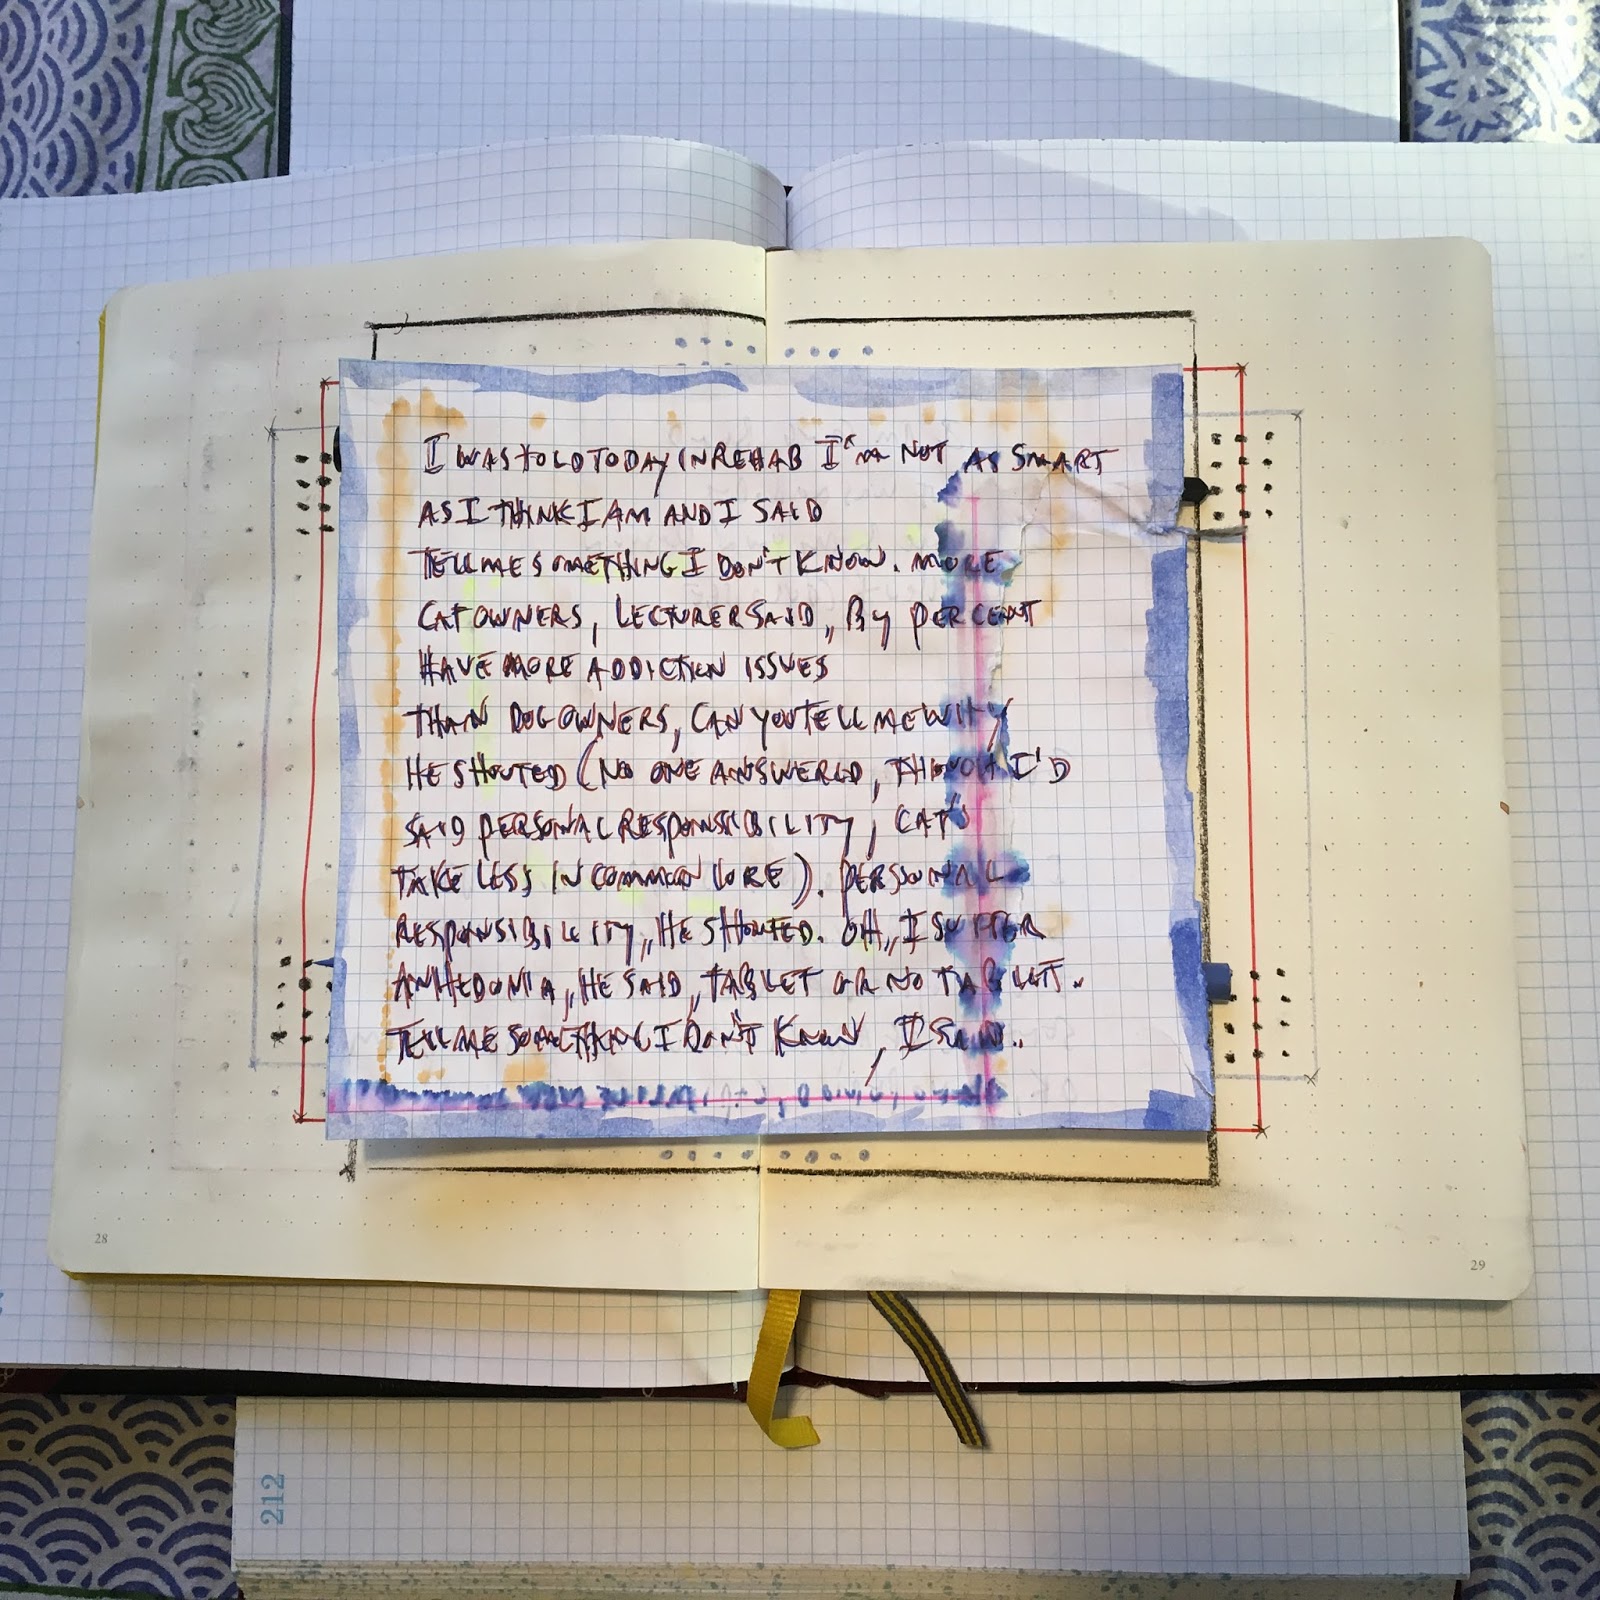 I WAS TOLD TODAY IN REHAB I'M NOT AS SMART
AS I THINK I AM AND I SAID
TELL ME SOMETHING I DON'T KNOW. MORE
CAT OWNERS, LECTURER SAID, BY PERCENT
HAVE MORE ADDICTION ISSUES
THAN DOG OWNERS, CAN YOU TELL ME WHY
HE SHOUTED (NO ONE ANSWERED, THOUGH I'D
SAID PERSONAL RESPONSIBILITY, CATS
TAKE LESS IN COMMON LORE). PERSONAL
RESPONSIBILITY, HE SHOUTED. OH, I SUFFER
ANHEDONIA, HE SAID, TABLET OR NO TABLET.
TELL ME SOMETHING I DON'T KNOW, I SAID.
28
29
212